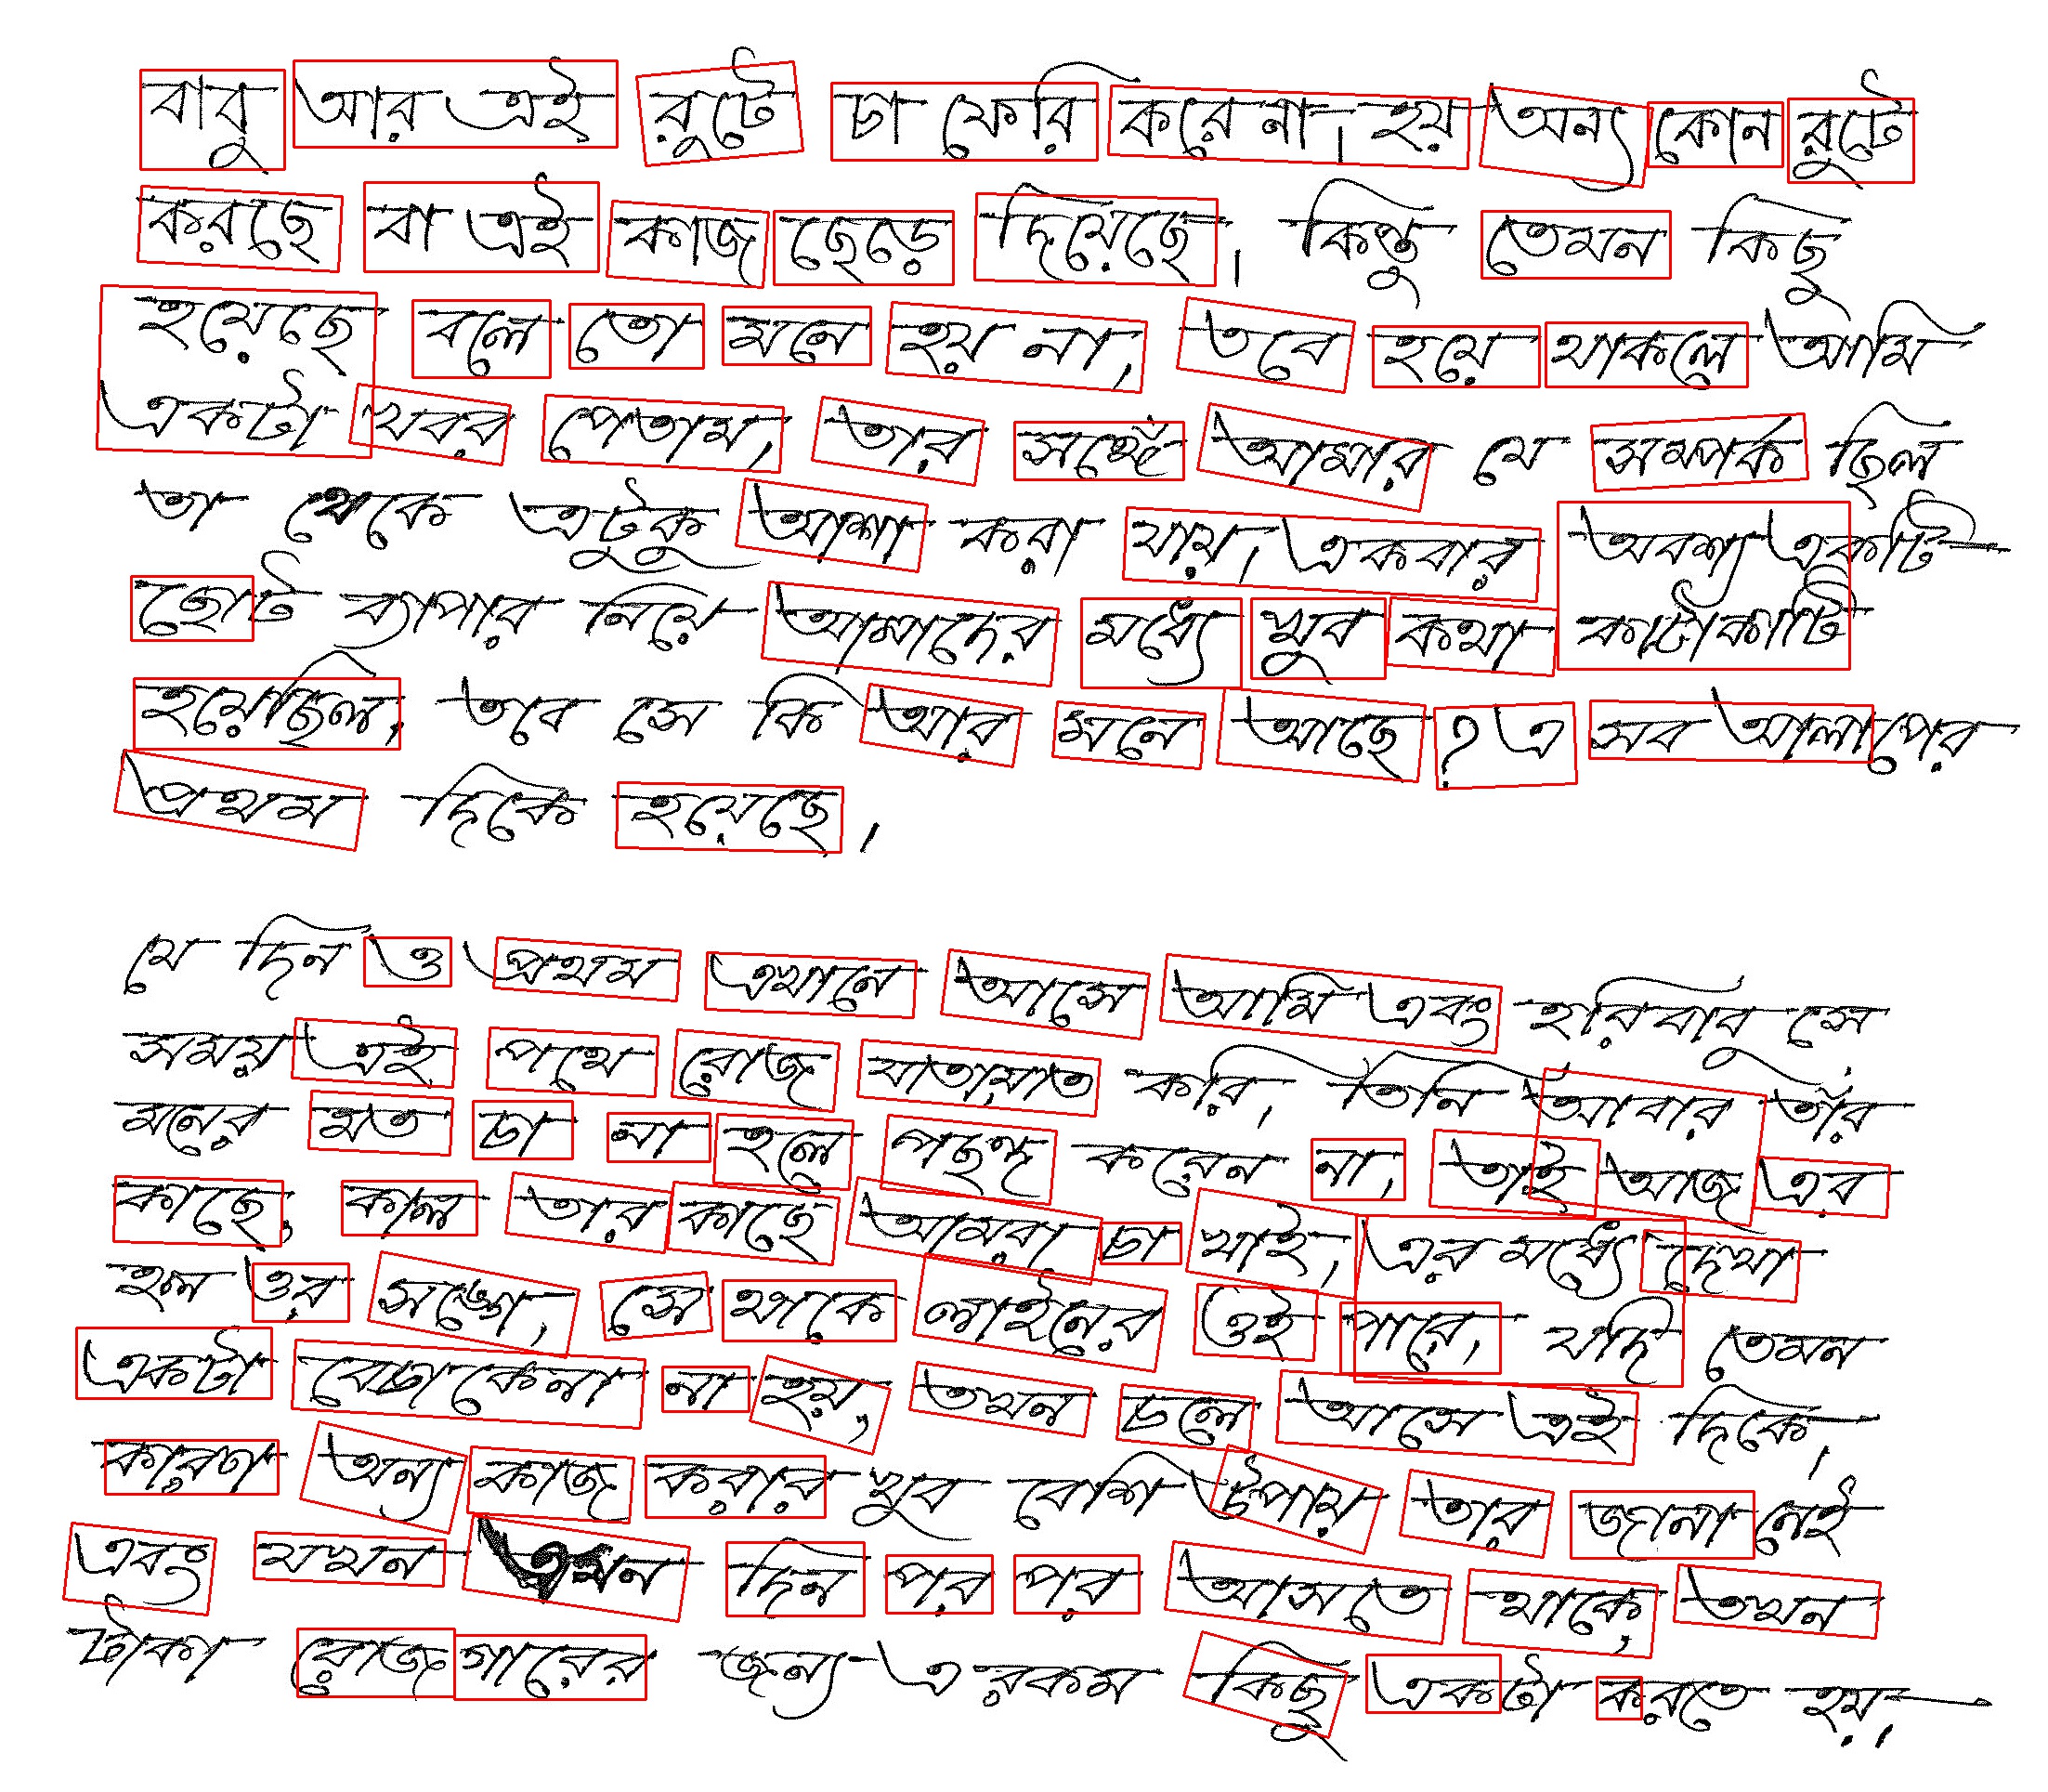 বাবু আর এই রুটে চা ফেরি করে না। হয় অন্য কোন রুটে
করছে বা এই কাজ ছেড়ে দিয়েছে। কিন্তু তেমন কিছু
হয়েছে বলে তো মনে হয় না, তবে হয়ে থাকলে আমি
একটা খবর পেতাম, তার সঙ্গে আমার যে সম্পর্ক ছিল
তা থেকে এটুকু আশা করা যায়। একবার অবশ্য একটি
ছোট ব্যাপার নিয়ে আমাদের মধ্যে খুব কথা কাটাকাটি
হয়েছিল, তবে সে কি আর মনে আছে? এ সব আলাপের
প্রথম দিকে হয়েছে।
যে দিন ও প্রথম এখানে আসে আমি এবং হরিবাবু সে
সময় এই পথে রোজ যাতায়াত করি, তিনি আবার তাঁর
মনের মত চা না হলে পছন্দ করেন না, তাই আজ এর
কাছে, কাল তার কাছে আমরা চা খাই, এর মধ্যে দেখা
হল ওর সঙ্গে, সে থাকে লাইনের ওই পারে, যদি তেমন
একটা বেচাকেনা না হয়, তখন চলে আসে এই দিকে,
কারণ অন্য কাজ করার খুব বেশি উপায় তার জানা নেই
এবং যখন এমন দিন পর পর আসতে থাকে, তখন
টাকা রোজগারের জন্য এ রকম কিছু একটা করতে হয়।